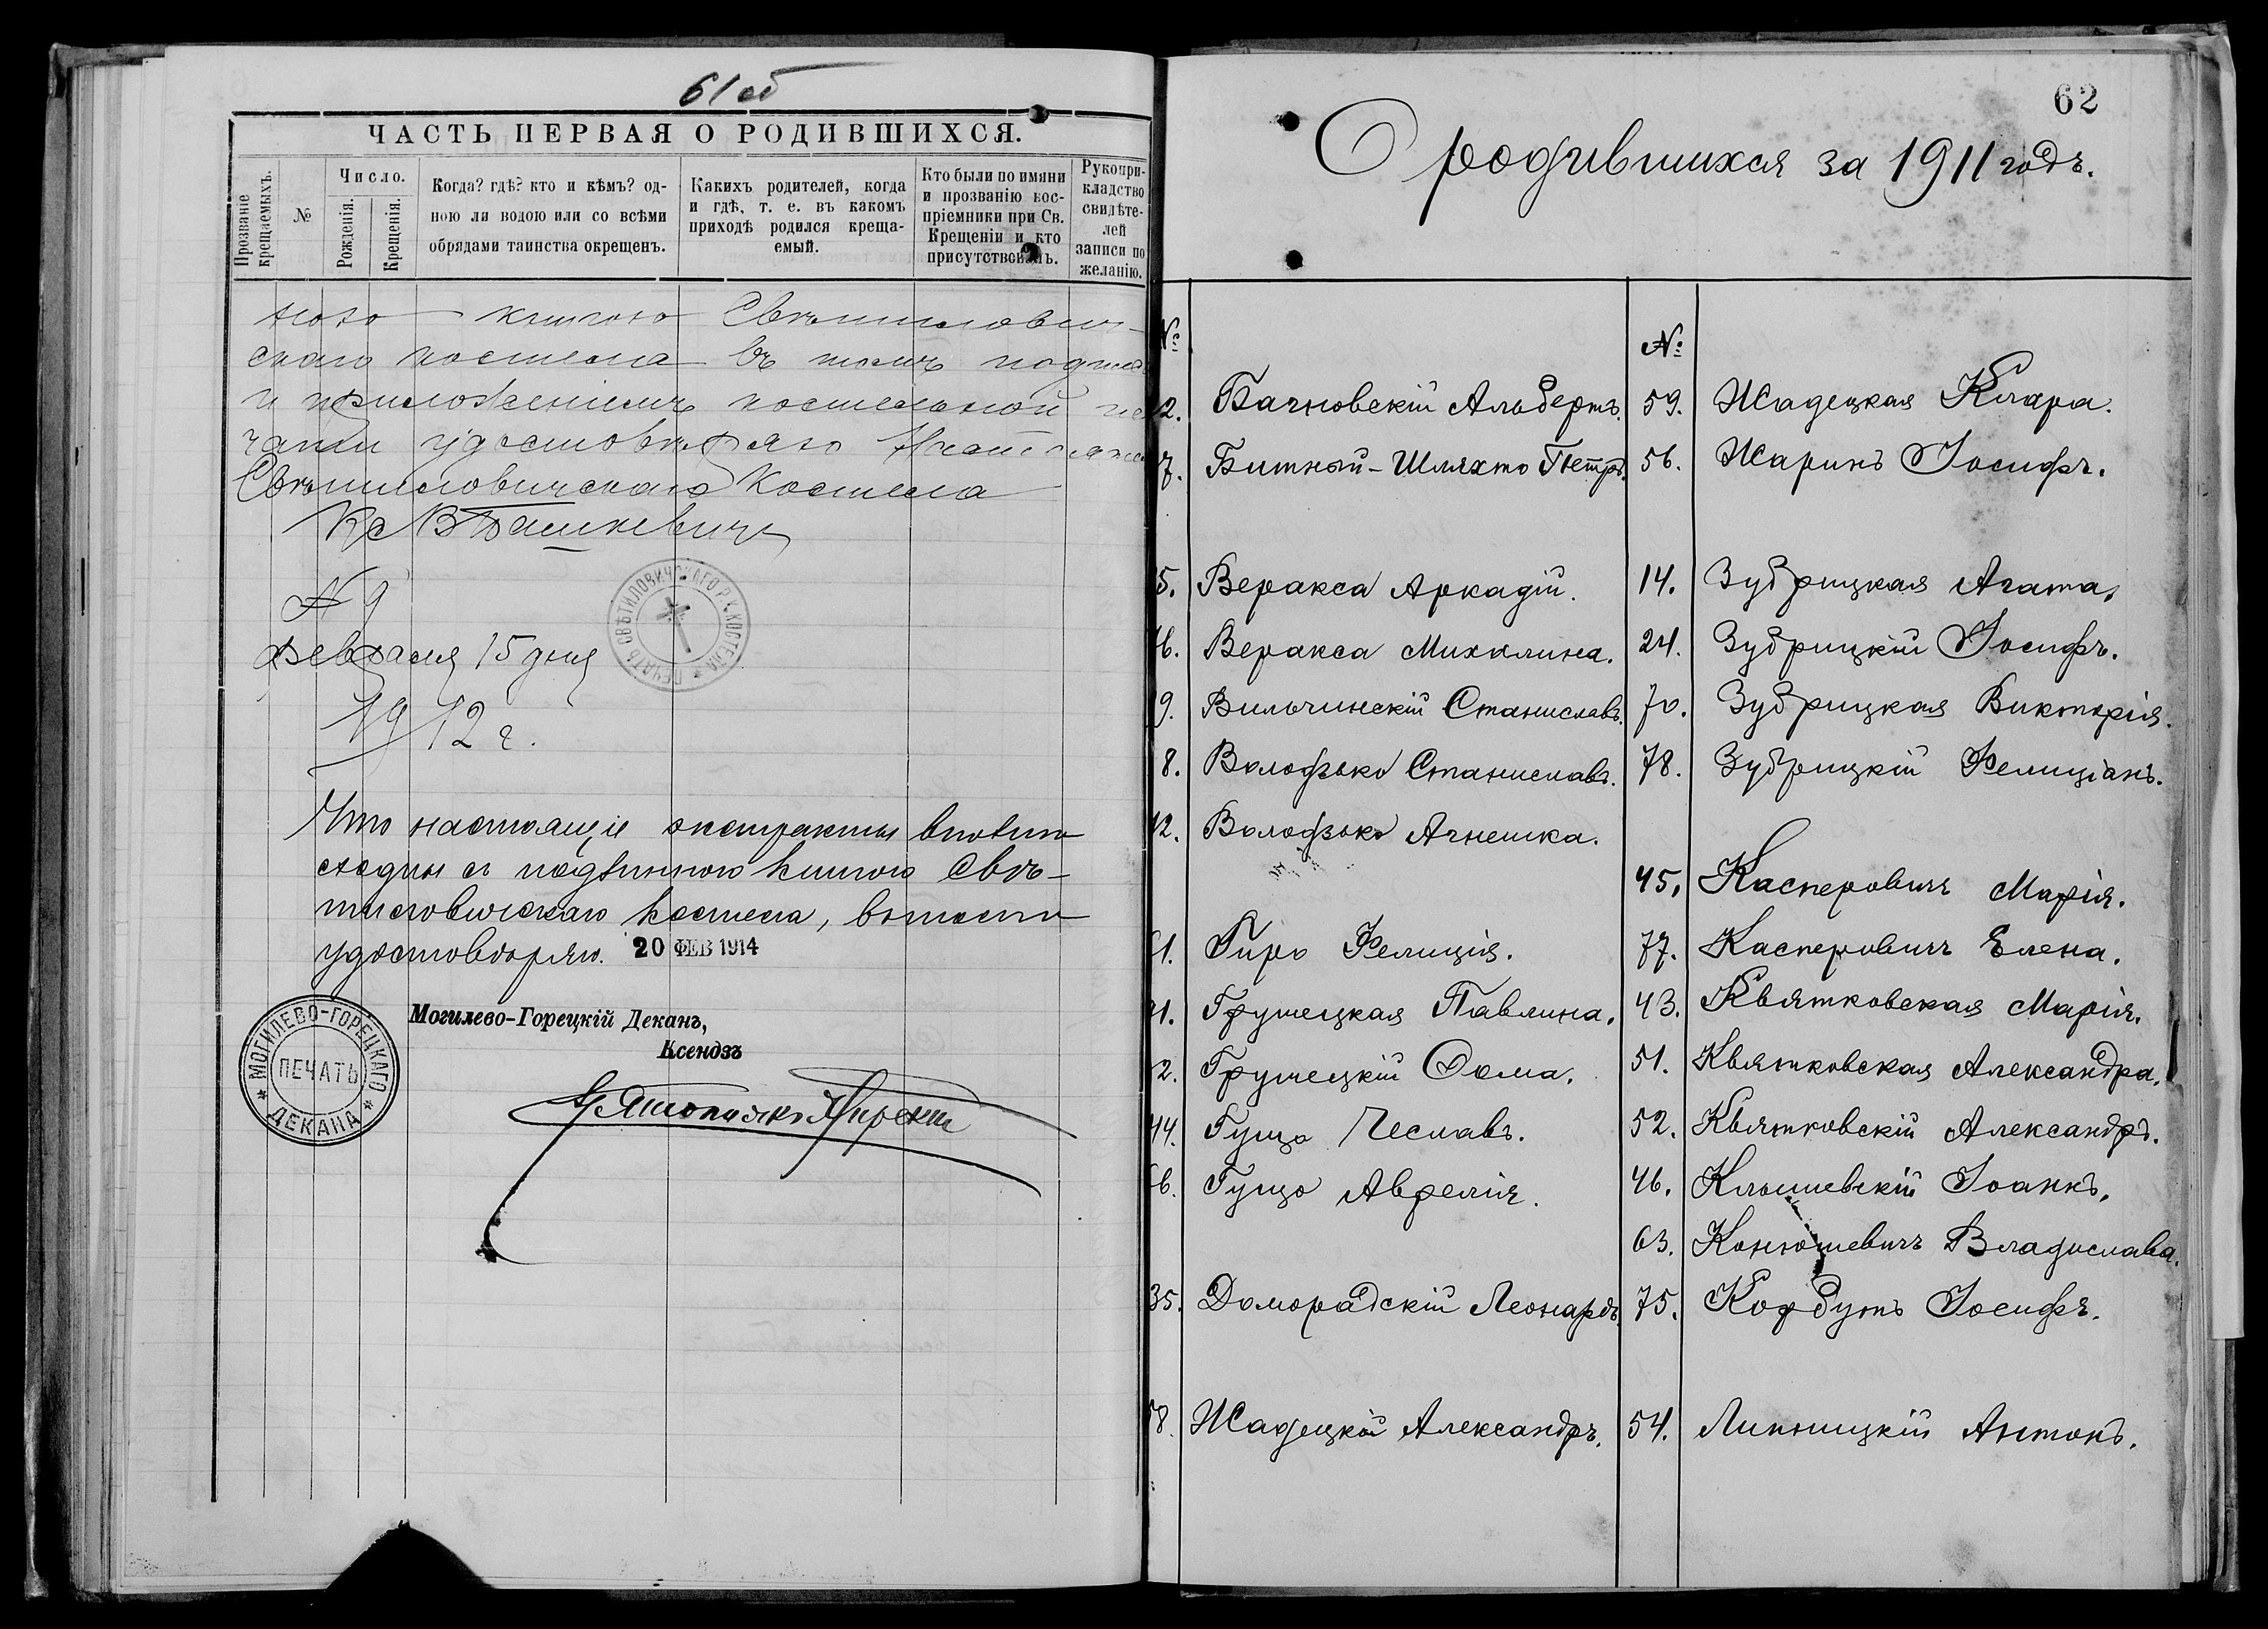 61 об
ЧАСТЬ ПЕРВАЯ О РОДИВШИХСЯ.
Прозваніе крещаемыхъ.
№
Число.
Рожденія.
Крещенія.
Когда? гдѣ? кто и кѣмъ? од-
ною ли водою или со всѣми
обрядами таинства окрещенъ.
Какихъ родителей, когда
и гдѣ, т. е. въ какомъ
приходѣ родился креща-
емый.
Кто были по имяни
и прозванію вос-
пріемники при Св.
Крещеніи и кто
присутствовалъ.
Рукопри-
кладство
свидѣте-
лей
записи по
желанію.
ною книгою Свѣтилович-
скаго костела въ томъ подписью
и приложеніемъ костельной пе
чати удостовѣряю Настоятель
Свѣтиловичскаго Костела
Кс В Ѣашкевичъ
№ 9
Февраля 15 дня
1912 г.
ПЕЧАТЬ СВѢТИЛОВИЧСКАГО Р. К. КОСТЕЛА
Что настоящіе экстракты вполнѣ
сходны съ подлинною книгою Свѣ-
тиловичскаго костела, въ томъ
удостовѣряю. 20 ФЕВ 1914
МОГИЛЕВО-ГОРЕЦКАГО ДЕКАНА
ПЕЧАТЬ
Могилево-Горецкій Деканъ,
Ксендзъ
62
О родившихся за 1911 годъ.
№
2. Бачновскій Альбертъ.
7. Битный-Шляхто Петръ.
5. Веракса Аркадій.
6. Веракса Михалина.
9. Вильчинскій Станиславъ.
8. Володзько Станиславъ.
12. Володзько Агнешка.
1. Гиро Фелиція.
1. Грушецкая Павлина.
2. Грушецкій Ѳома.
44. Гущо Чеславъ.
6. Гущо Аврелія.
35. Доморадскій Леонардъ.
8. Жадецкій Александръ.
№
59. Жадецкая Клара.
56. Жаринъ Іосифъ.
14. Зубрицкая Агата.
24. Зубрицкій Іосифъ.
70. Зубрицкая Викторія.
78. Зубрицкій Фелиціанъ.
45. Касперовичъ Марія.
77. Касперовичъ Елена.
43. Квятковская Марія.
51. Квятковская Александра.
52. Квятковскій Александръ.
46. Клышевскій Іоаннъ.
63. Конюшевичъ Владислава.
75. Кордутъ Іосифъ.
54. Липницкій Антонъ.